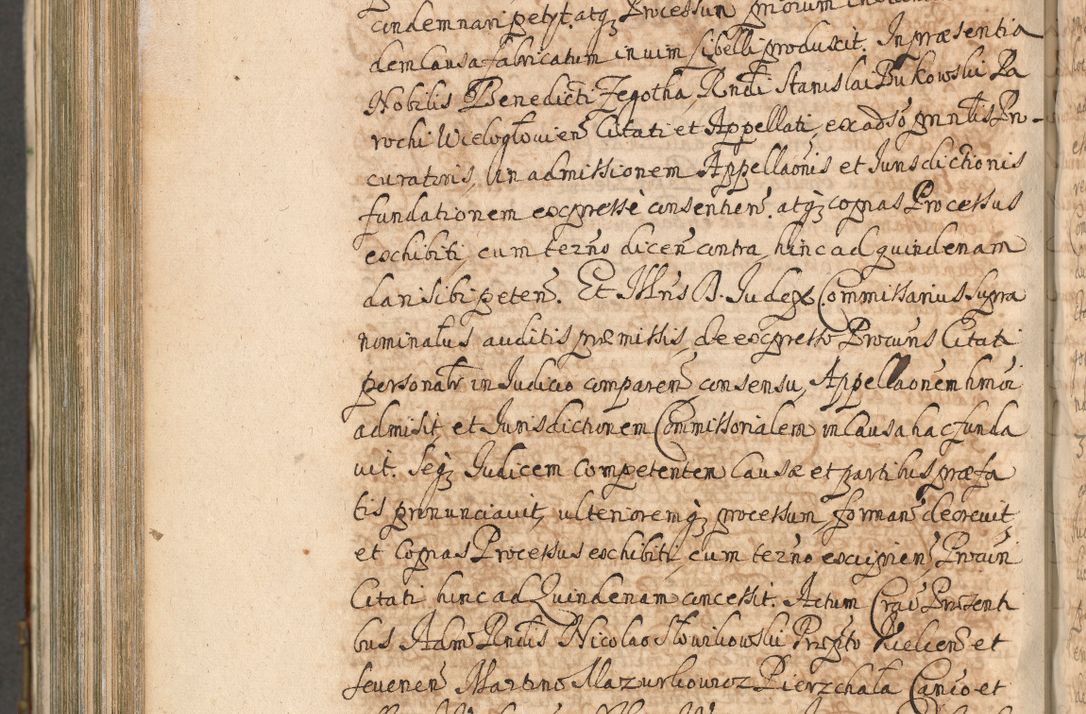 condemnari petyt. atq3 Processum priorum in
dem Causa fabricatum in vim libelli produxit. In præsentia
Nobilis Benedicti Zegotha, Rndi Stanislai Bukowski Pa
rochi Wieloglovien Citati et Appellati, ex adso gnnlis Pro-
curatoris, in admissionem Appellaonis et Jurisdictionis
fundationem expresse consentien. atq3 copias Processus
exhibiti, cum terno dicen contra, hinc ad quindenam
dari sibi peten. Et Illris D. Judex Commissarius supra
nominatus auditis præmissis, de expresso Procuris Citati
personalr in Judicio comparen consensu, Appellaonem hmoi
admisit, et Jurisdictionem Commissorialem in Causa hac funda
vit. seq3 Judicem competentem Causæ et partibus præfa
tis pronunciavit, ulterioremq3 processum formari decrevit,
et copias Processus exhibiti, cum terno excipien, Procuri
Citati hinc ad Quindenam concessit. Actum Crav Præsenti
bus Adm Rndis Nicolao Slowikowski Præpto Kielcen et
sevenen Martino Mazurkowicz Pierzchala Canco et